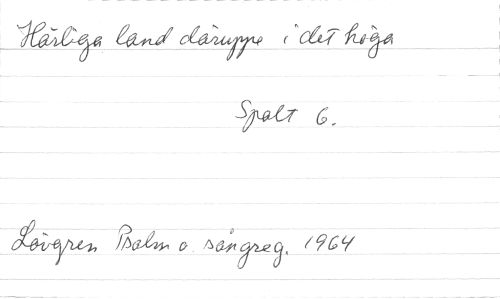 Härliga land däruppe i det höga
Spalt 6.
Lövgren Psalm o. sångreg. 1964